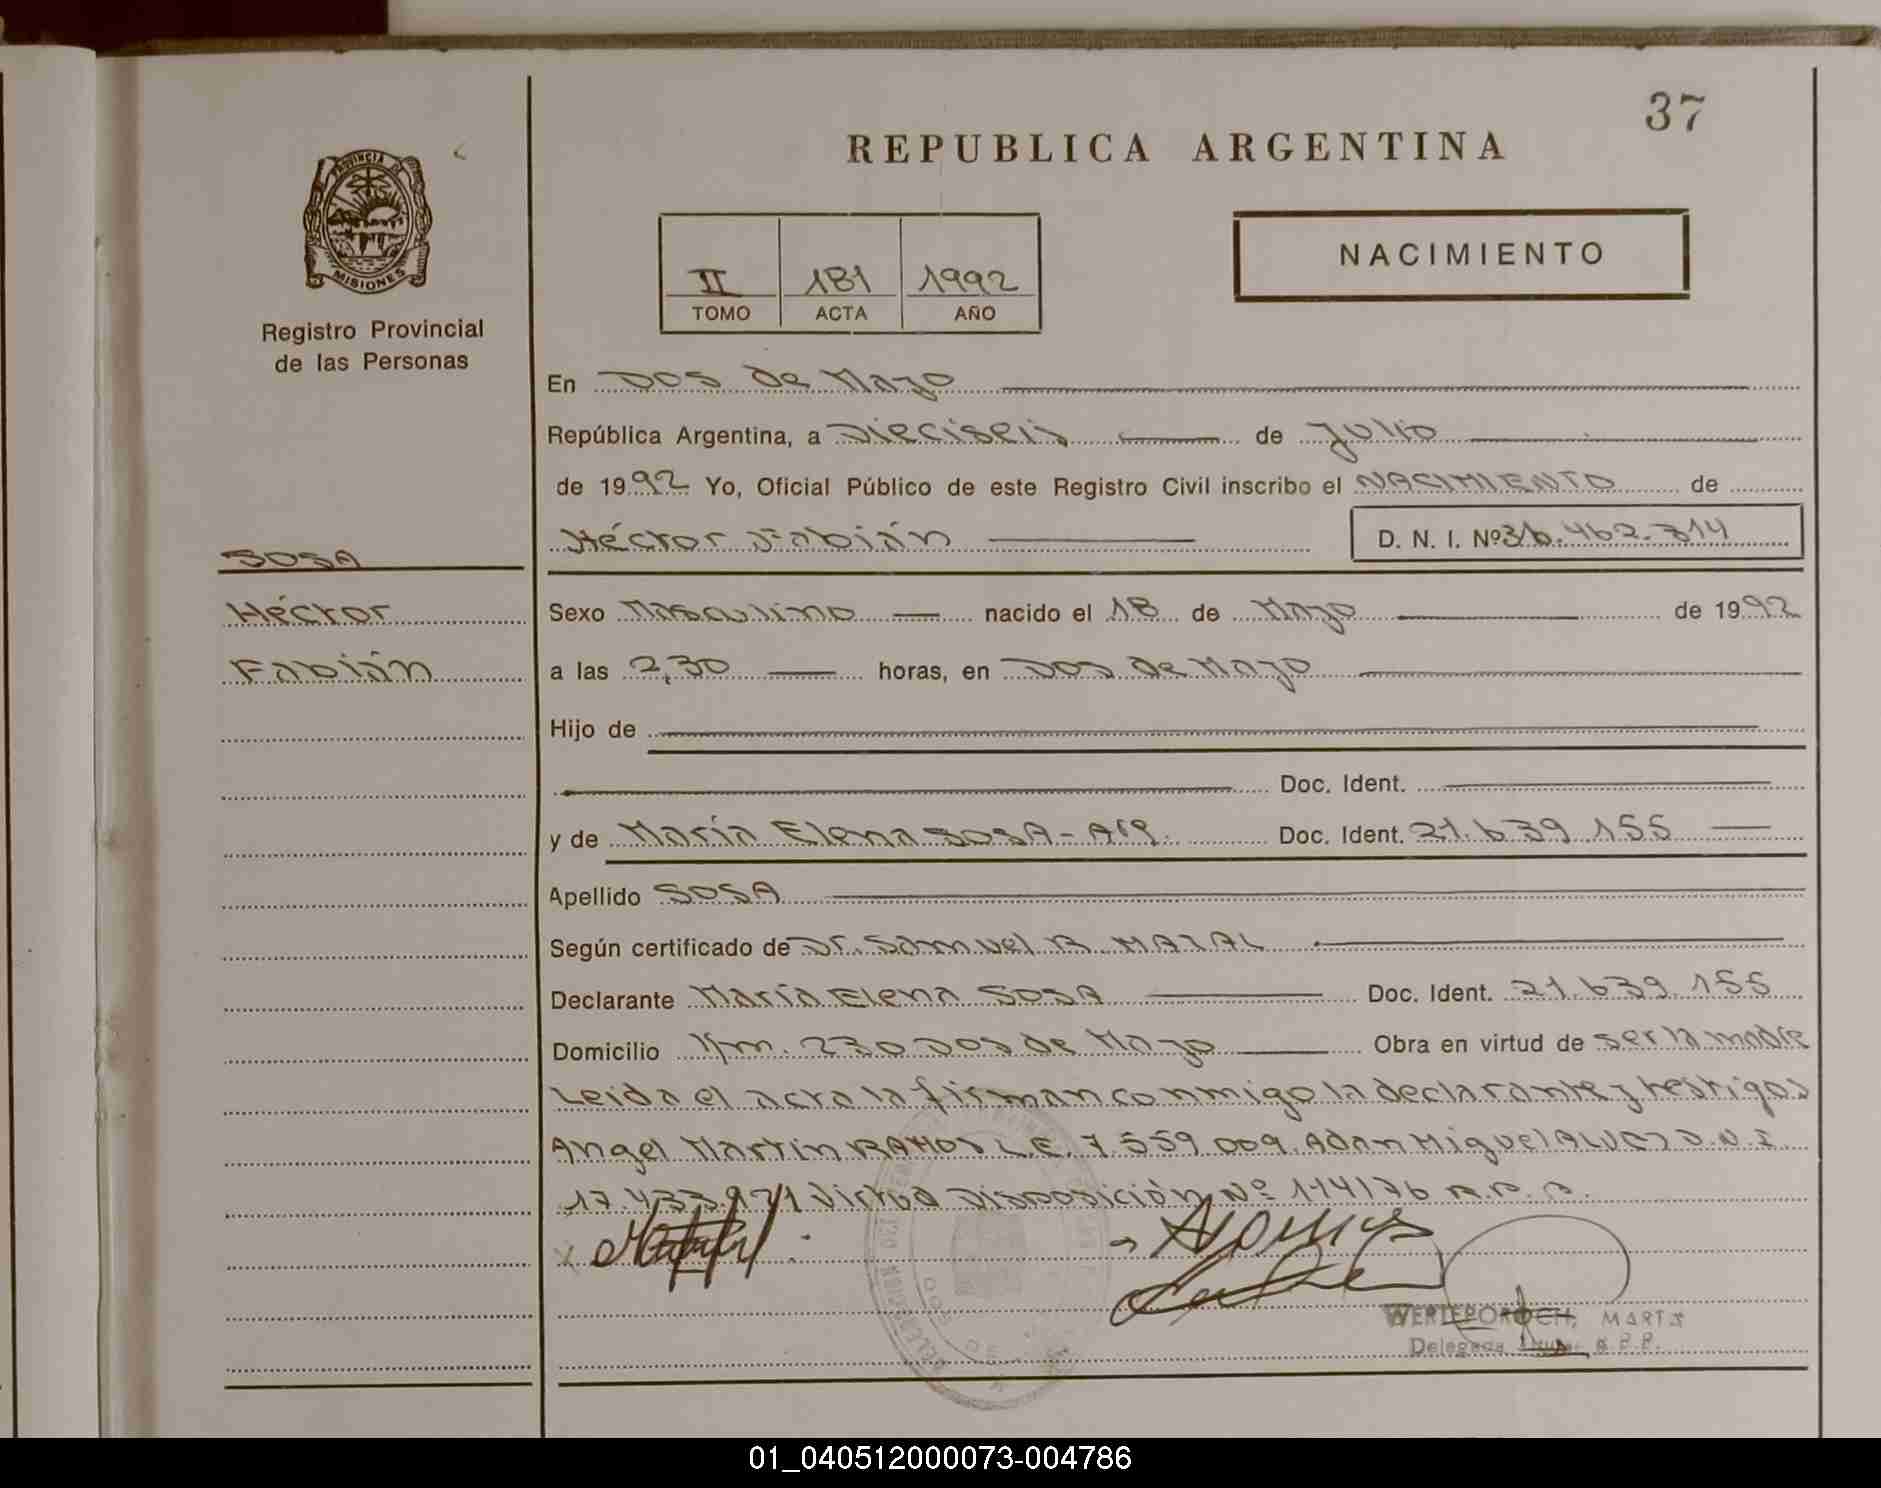 37
REPUBLICA ARGENTINA
PROVINCIA DE
MISIONES
Registro Provincial
de las Personas
II 181 1992
TOMO ACTA AÑO
NACIMIENTO
En Dos de Mayo
República Argentina, a Dieciseis de Julio
de 1992 Yo, Oficial Público de este Registro Civil inscribo el NACIMIENTO de
Héctor Fabián D. N. I. Nº 36.462.314
SOSA
Héctor
Fabián
Sexo Masculino nacido el 18 de Mayo de 1992
a las 2,30 horas, en Dos de Mayo
Hijo de
Doc. Ident.
y de María Elena SOSA - Arg. Doc. Ident. 21.639.155
Apellido SOSA
Según certificado de Dr. Samuel B. MAZAL
Declarante María Elena SOSA Doc. Ident. 21.639.155
Domicilio Km. 230 Dos de Mayo Obra en virtud de ser la madre
Leida el acta la firman conmigo la declarante y testigos
Angel Martin RAMOS L.E. 7.559.009. Adan Miguel D.N.I.
17.433.971 Virtud Disposición Nº 114/76 R.P.P.
WERTEPOROCH, MARTA
Delegada R.P.P.
01_040512000073-004786